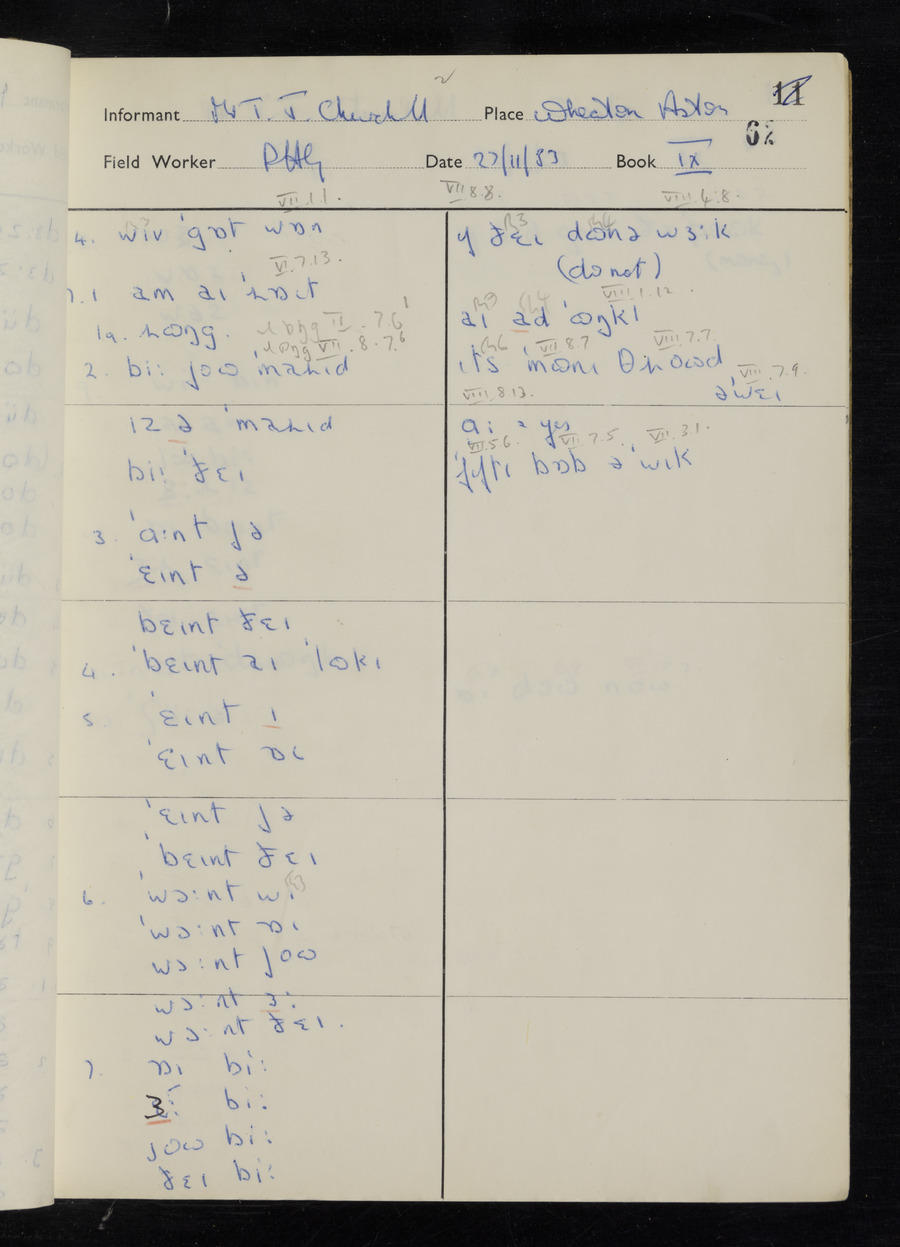 11
Informant Mr T. J. Churchill Place Wheaton Aston
62
Field Worker PHG Date 27/11/53 Book IX
VII.1.1. VII 8.8. VIII.4.8.
4. wiv ˈgɒt wɒn
VI.7.13.
7.1 am aɪ ˈɹɒɪt
1a. ɹɒŋg. ɹɒŋg II.7.6
ɹɒŋg VII.8.7.6
2. bi: joɷ ˈmaɹɪd
ɪz ə ˈmaɹɪd
bi: ˈðɛɪ
3. ˈɑ:nt jə
ˈɛɪnt ə
bɛɪnt ðɛɪ
4. ˈbɛɪnt aɪ ˈlɒkɪ
5 ˈɛɪnt ɪ
ˈɛɪnt ɒɪ
ˈɛɪnt jə
ˈbɛɪnt ðɛɪ
6. ˈwɔ:nt wi
ˈwɔ:nt ɒɪ
wɔ:nt joɷ
wɔ:nt ɜ:
wɔ:nt ðɛɪ.
7. ɒɪ bi:
ɜ: bi:
joɷ bi:
ðɛɪ bi:
ɪf ðɛɪ dɷnə wɜ:k
(do not)
VIII.1.12.
aɪ ad ˈɷŋkɪ
VII.8.7 VIII.7.7.
ɪts ˈmɷnɪ θɹoɷd
VIII.7.9.
VIII.8.13. əˈwɛɪ
aɪ = yes
VII.5.6. VII.7.5. VII.3.1.
ˈfɪftɪ bɒb ə ˈwɪk